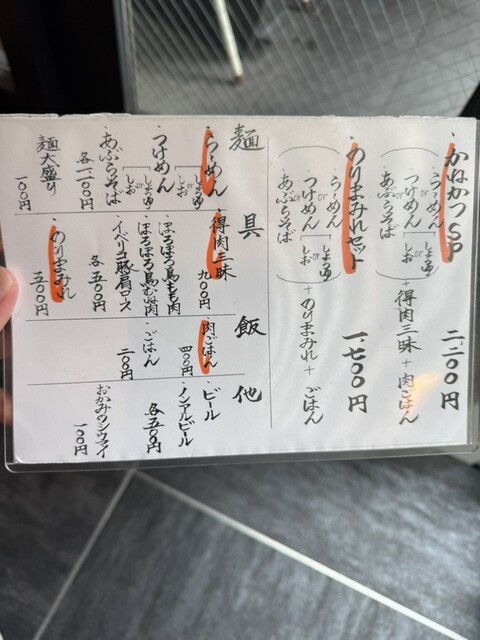 ・かねかつSP 二、二〇〇円
らーめん or つけめん or あぶらそば しょうゆ or しお + 得肉三昧 + 肉ごはん
・のりまみれセット 一、七〇〇円
らーめん or つけめん or あぶらそば しょうゆ or しお + のりまみれ + ごはん
麺
・らーめん
・つけめん
しょうゆ or しお
しょうゆ or しお
・あぶらそば
各一、二〇〇円
麺大盛り 一〇〇円
具
・得肉三昧 九〇〇円
・ほろほろ鳥もも肉
・ほろほろ鳥むね肉
・イベリコ豚肩ロース
各五〇〇円
・のりまみれ 五〇〇円
飯
・肉ごはん 四〇〇円
・ごはん 二〇〇円
他
・ビール
・ノンアルビール
各五五〇円
おかみのシウマイ 一〇〇円